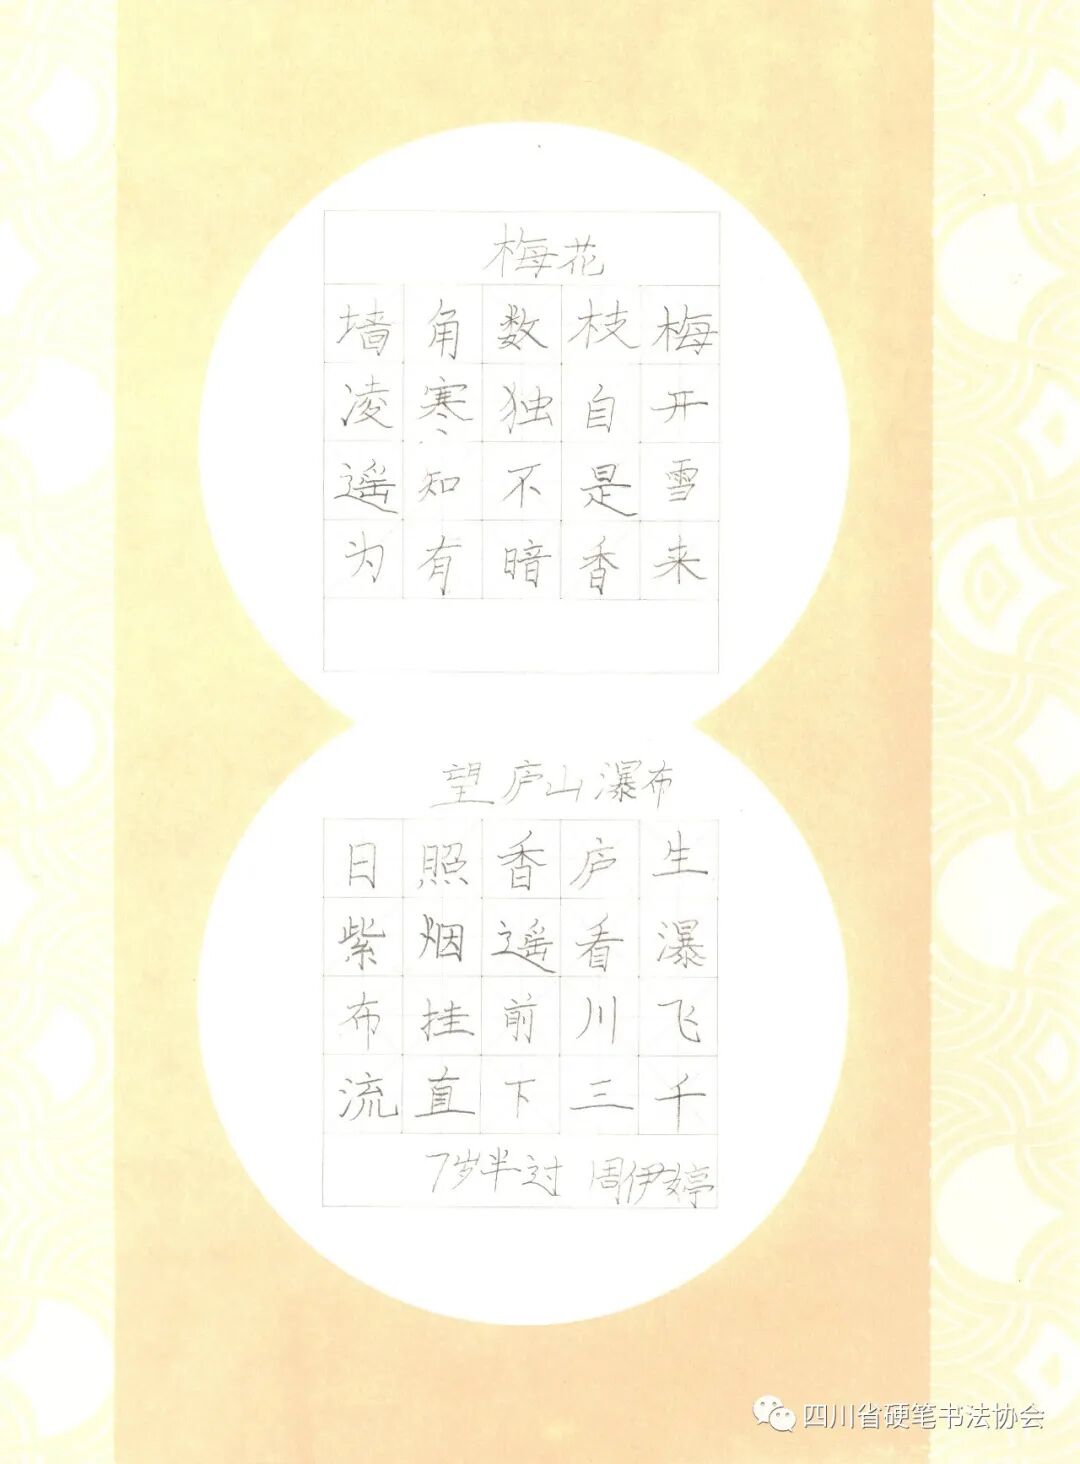 梅花
墙角数枝梅
凌寒独自开
遥知不是雪
为有暗香来
望庐山瀑布
日照香庐生
紫烟遥看瀑
布挂前川飞
流直下三千
7岁半过 周伊婷
四川省硬笔书法协会